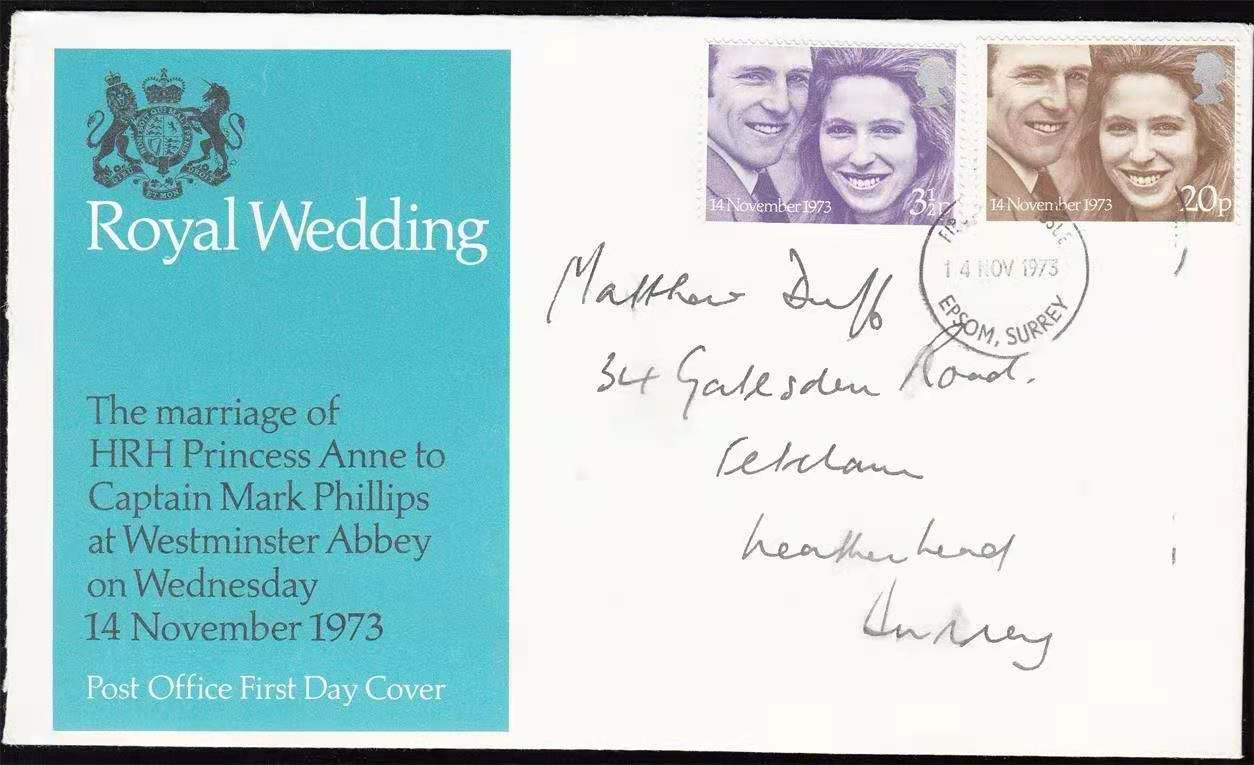 Royal Wedding
The marriage of
HRH Princess Anne to
Captain Mark Phillips
at Westminster Abbey
on Wednesday
14 November 1973
Post Office First Day Cover
14 November 1973 3½p
14 November 1973 20p
14 NOV 1973
EPSOM, SURREY
Matthew Duff
34 Road.
Fetcham
Leatherhead
Surrey